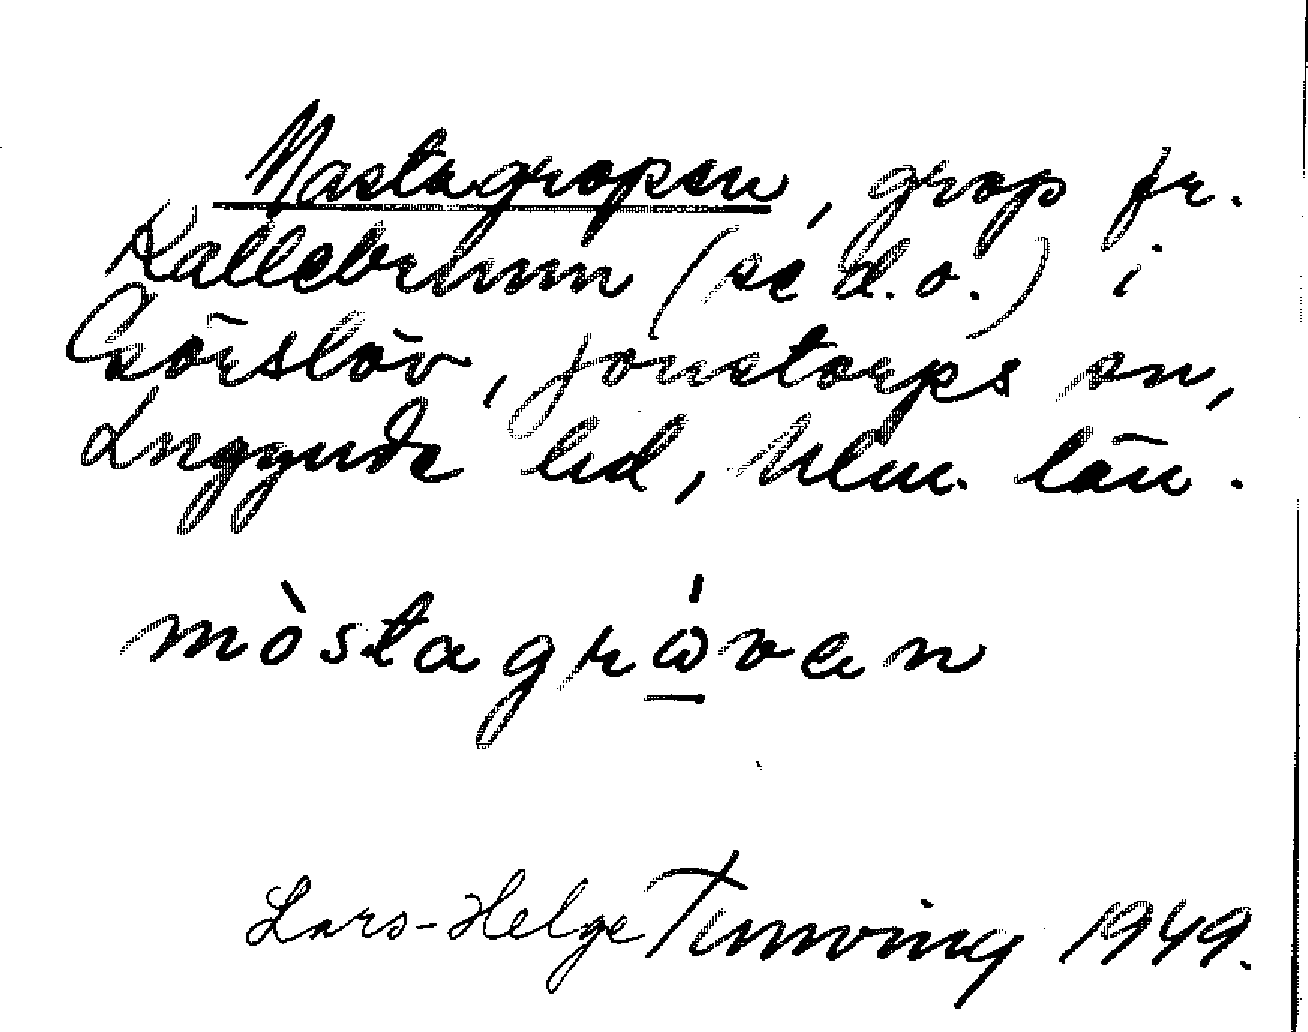 Mastagropen, grop fr.
Kallebrunn (se d.o.) i
Görslöv, Jonstorps sn,
Luggude hd, Mlm. län.
mòstagrώ̲ven
Lars-Helge 1949.